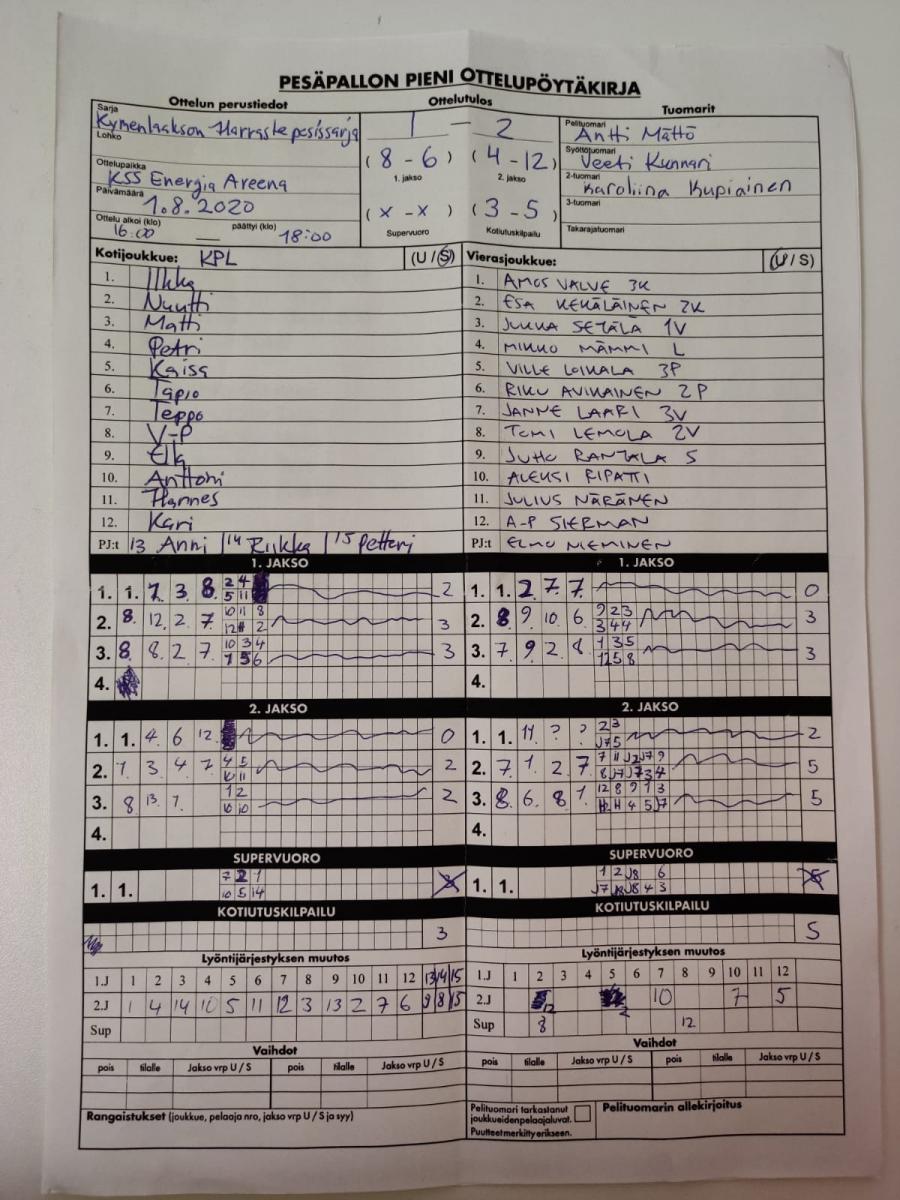 PESÄPALLON PIENI OTTELUPÖYTÄKIRJA
Ottelun perustiedot Ottelutulos Tuomarit
Sarja
Kymenlaakson Harrastepesissarja
Lohko
Ottelupaikka
KSS Energia Areena
Päivämäärä
1.8.2020
Ottelu alkoi (klo) päättyi (klo)
16:00 — 18:00
1 — 2
(8 - 6) (4 - 12)
1. jakso 2. jakso
(x - x) (3 - 5)
Supervuoro Kotiutuskilpailu
Pelituomari
Antti Mättö
Syöttötuomari
Veeti Kunnari
2-tuomari
Karoliina Kupiainen
3-tuomari
Takarajatuomari
Kotijoukkue: KPL (U / S)
1. Ilkka
2. Nuutti
3. Matti
4. Petri
5. Kaisa
6. Tapio
7. Teppo
8. V-P
9. Ella
10. Anttoni
11. Hannes
12. Kari
PJ:t 13 Anni | 14 Riikka | 15 Petteri
Vierasjoukkue: (U / S)
1. AMOS VALVE 3K
2. ESA KEKÄLÄINEN 2K
3. JUKKA SETÄLÄ 1V
4. MIKKO MÄMMI L
5. VILLE LOIKALA 3P
6. RIKU AVIKAINEN 2P
7. JANNE LAARI 3V
8. TOMI LEMOLA 2V
9. JUHO RANTALA S
10. ALEKSI RIPATTI
11. JULIUS NÄRÄNEN
12. A-P SIERMAN
PJ:t ELMO NIEMINEN
1. JAKSO
1. 1. 7. 3. 8. 2 4 2
5 11
2. 8. 12. 2. 7. 10 11 8 3
12 2
3. 8. 8. 2. 7. 10 3 4 3
7 5 6
4.
1. JAKSO
1. 1. 2. 7. 7. 0
2. 8. 9. 10. 6. 9 2 3 3
3 4 4
3. 7. 9. 2. 8. 1 3 5 3
12 5 8
4.
2. JAKSO
1. 1. 4. 6 12. 0
2. 1. 3. 4. 7. 4 5 2
10 11
3. 8 13. 7. 1 2 2
10 10
4.
2. JAKSO
1. 1. 11. ? ? 2 3 2
J7 5
2. 7. 1. 2. 7. 7 11 J2 J7 9 5
8 J7 J7 3 4
3. 8. 6. 8. 1. 12 8 9 1 3 5
4 5 J7
4.
SUPERVUORO
1. 1. 7 2 1
10 5 14
SUPERVUORO
1. 1. 1 2 J8 6
J7 J8 J8 4 3
KOTIUTUSKILPAILU
3
KOTIUTUSKILPAILU
5
Lyöntijärjestyksen muutos
1.J 1 2 3 4 5 6 7 8 9 10 11 12 13 14 15
2.J 1 4 14 10 5 11 12 3 13 2 7 6 9 8 15
Sup
Lyöntijärjestyksen muutos
1.J 1 2 3 4 5 6 7 8 9 10 11 12
2.J 12 2 10 7 5
Sup 8 12
Vaihdot
pois tilalle Jakso vrp U / S pois tilalle Jakso vrp U / S
Vaihdot
pois tilalle Jakso vrp U / S pois tilalle Jakso vrp U / S
Rangaistukset (joukkue, pelaaja nro, jakso vrp U / S ja syy)
Pelituomari tarkastanut
joukkueiden pelaajaluvat.
Puutteet merkitty erikseen.
Pelituomarin allekirjoitus